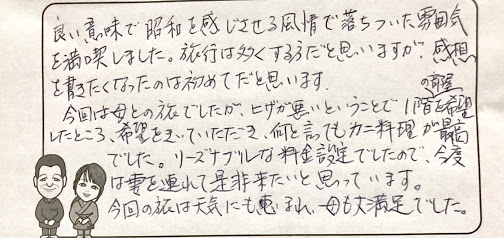 良い意味で昭和を感じさせる風情で落ちついた雰囲気
を満喫しました。旅行は多くする方だと思いますが、感想
を書きたくなったのは初めてだと思います。
今回は母との旅でしたが、ヒザが悪いということで1階の部屋を希望
したところ、希望をきいていただき、何と言ってもカニ料理が最高
でした。リーズナブルな料金設定でしたので、今度
は妻を連れて是非来たいと思っています。
今回の旅は天気にも恵まれ、母も大満足でした。